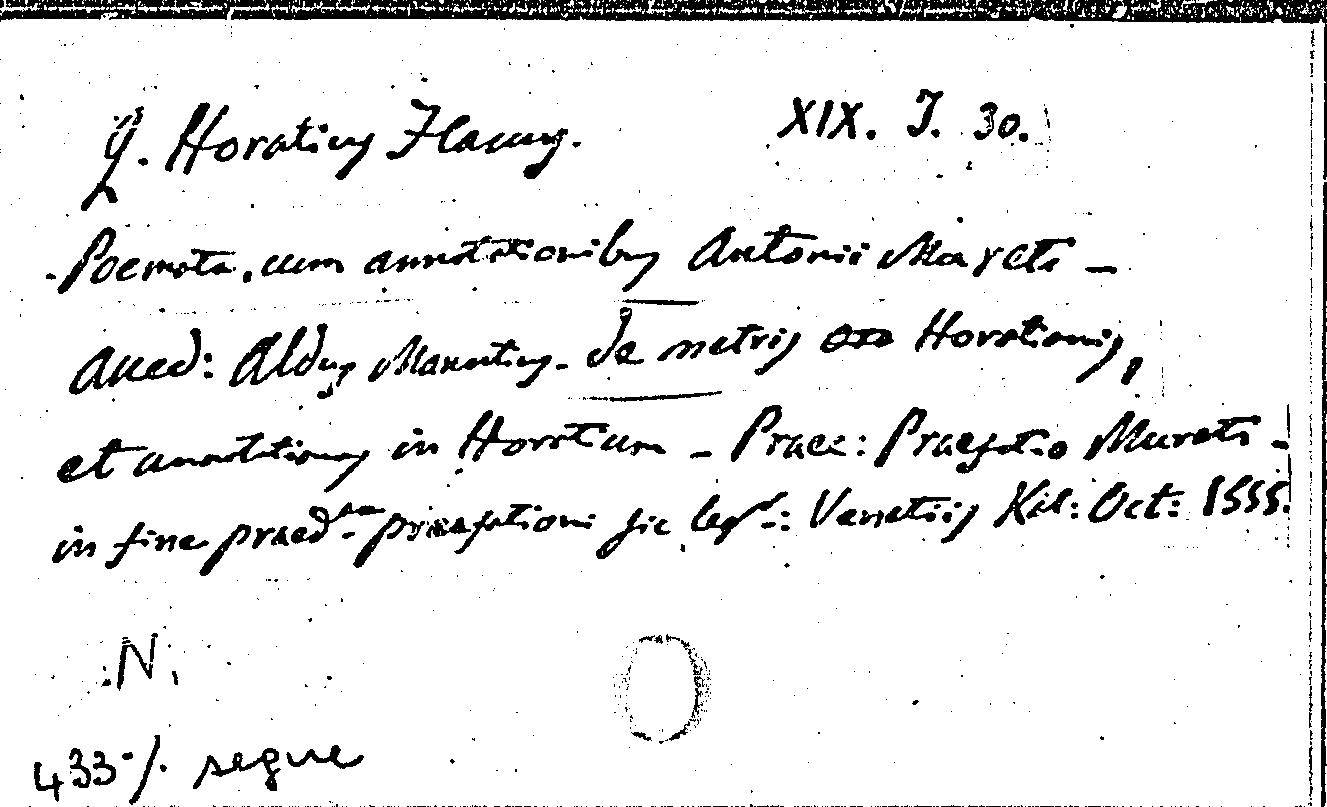 Q. Horatius Flaccus. XIX. J. 30.
- Poemata, cum annotationibus Antonii Mureti -
Aced: Aldus Manutius - De metris Horatianis,
et annotationes in Horatium - Praec: Praefatio Mureti -
in fine praed.tae praefationi sic leg.r: Venetiis Kal: Oct: 1555.
N.
433·/. segue